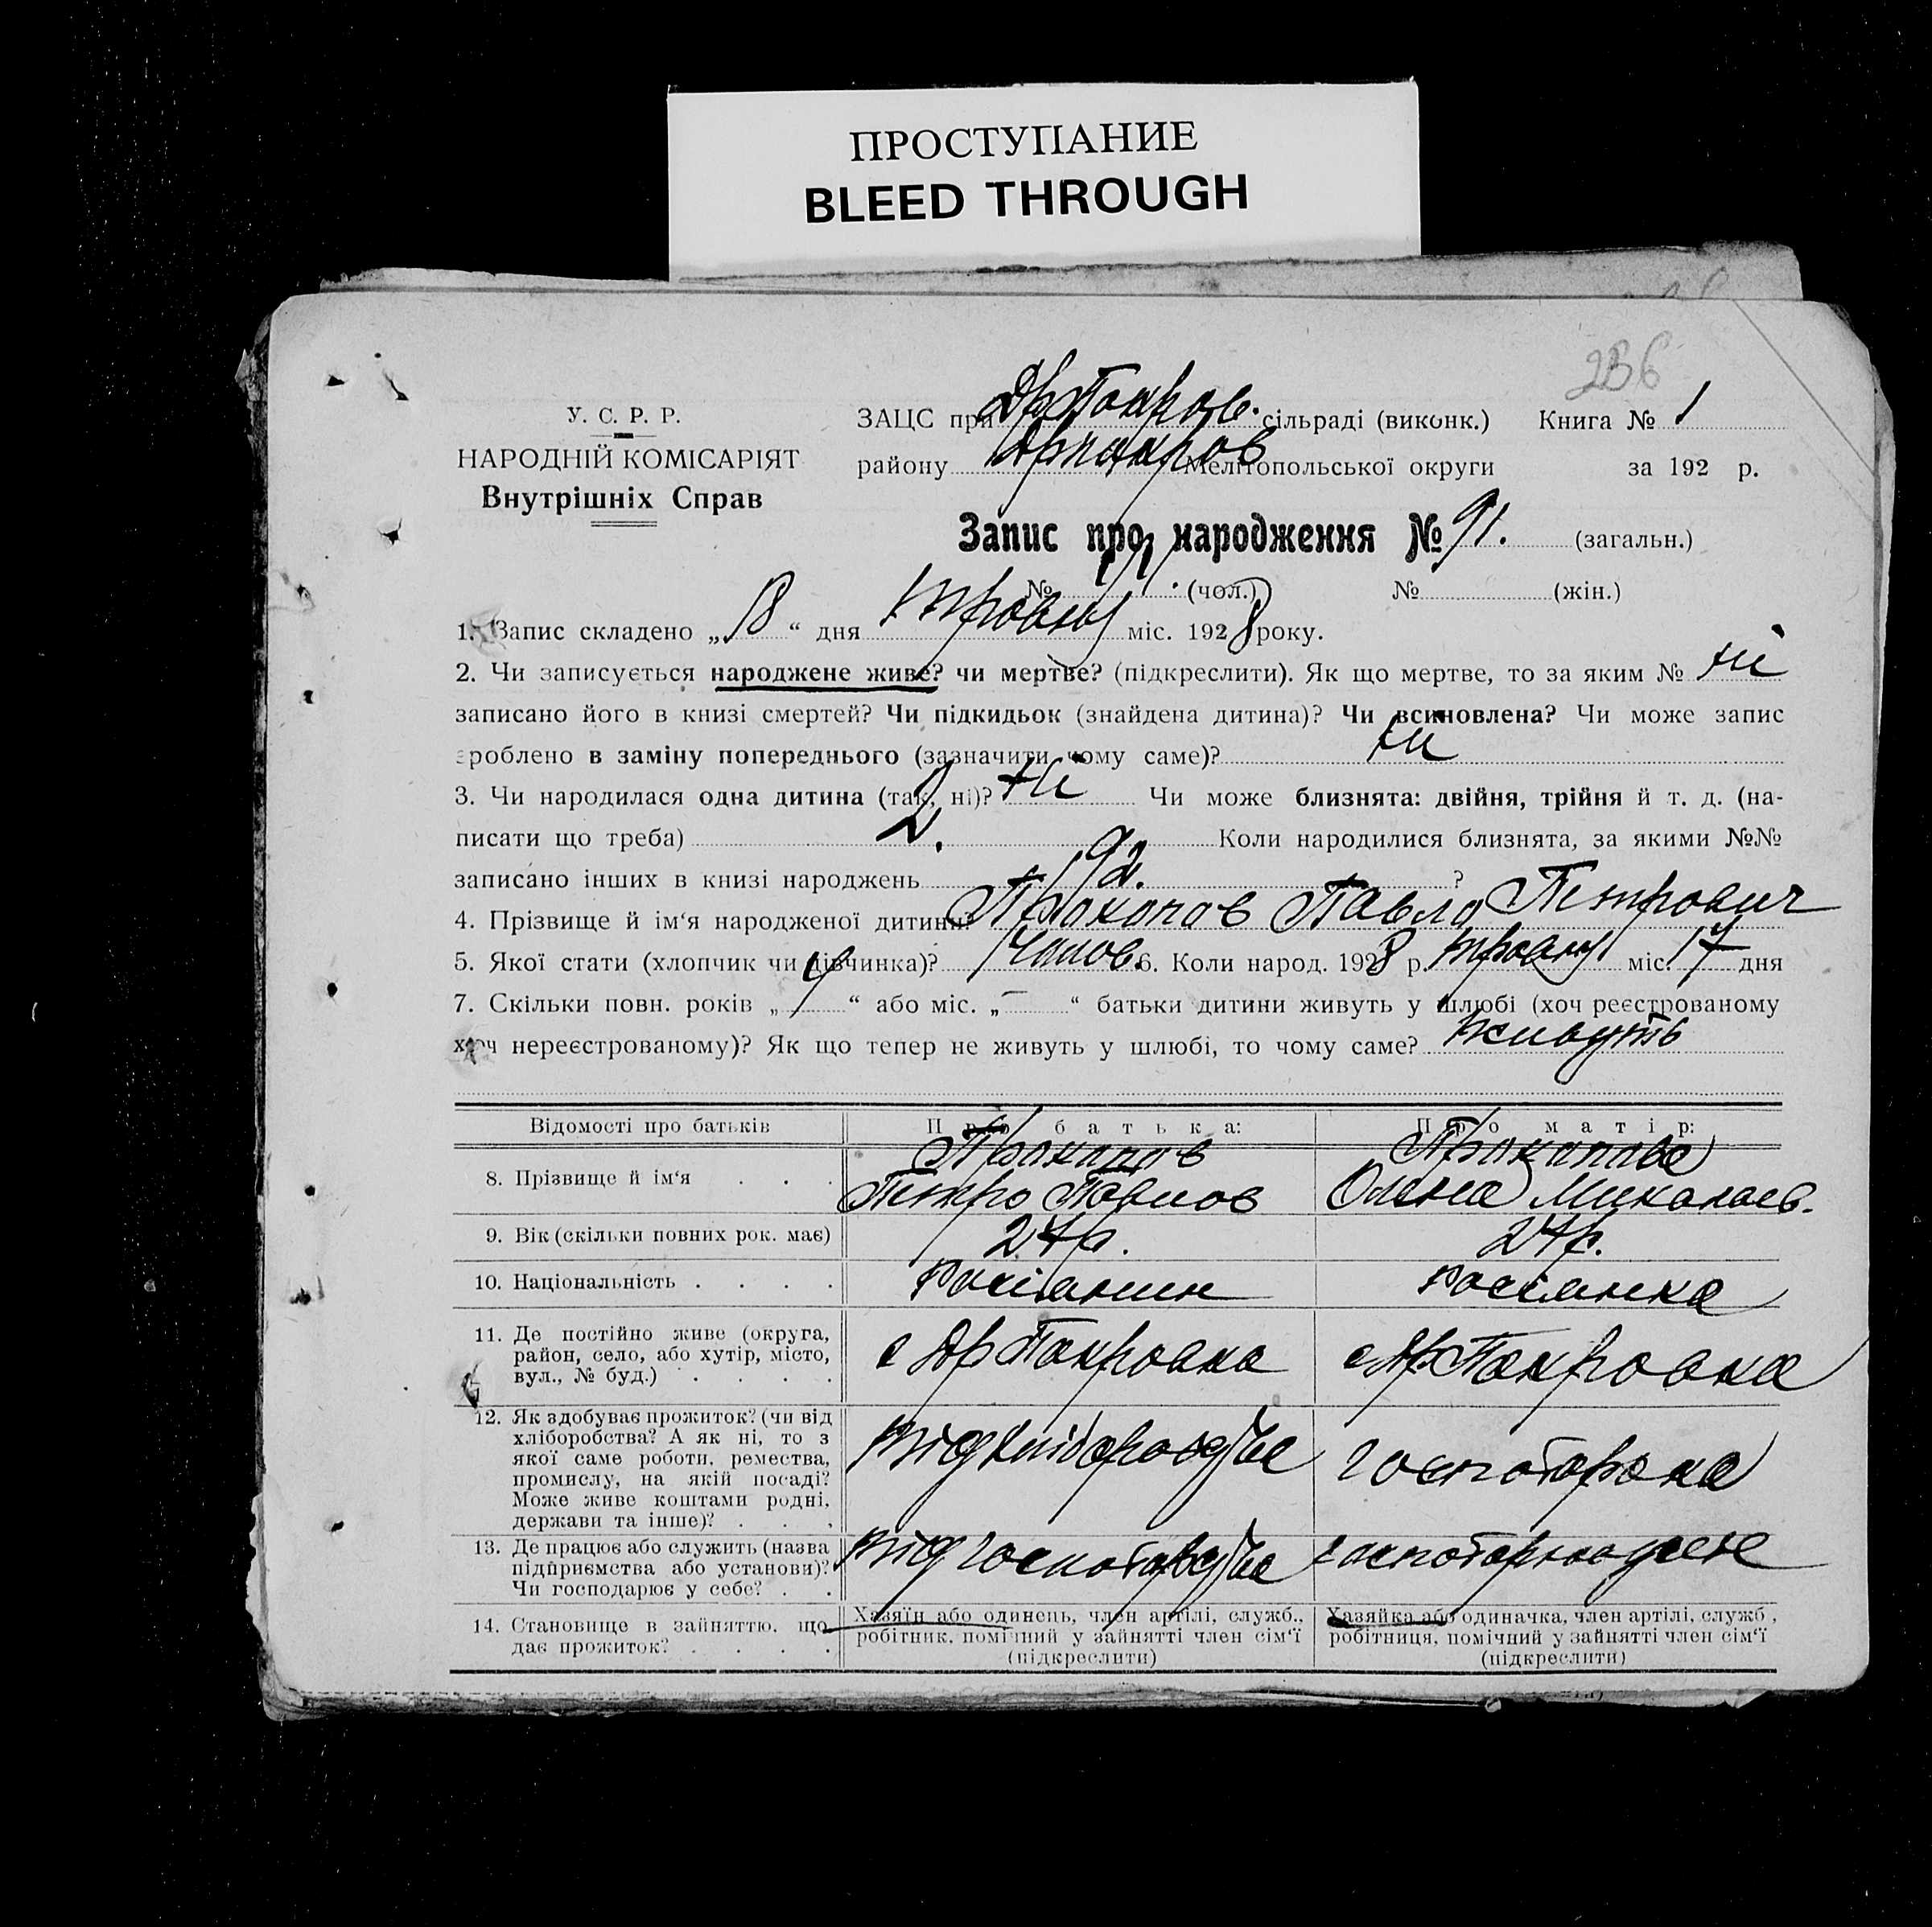 ПРОСТУПАНИЕ
BLEED THROUGH
236
У. С. Р. Р.
НАРОДНІЙ КОМІСАРІЯТ
Внутрішніх Справ
ЗАЦС при Др Покров. сільраді (виконк.) Книга № 1
району Дрпокров Мелітопольської округи за 192 р.
Запис про народження № 91. (загальн.)
№ (чол.) № (жін.)
1. Запис складено „18“ дня травня міс. 1928 року.
2. Чи записується народжене живе? чи мертве? (підкреслити). Як що мертве, то за яким № ні
записано його в книзі смертей? Чи підкидьок (знайдена дитина)? Чи всиновлена? Чи може запис
зроблено в заміну попереднього (зазначити чому саме)? ні
3. Чи народилася одна дитина (так, ні)? ні Чи може близнята: двійня, трійня й т. д. (на-
писати що треба) 2. Коли народилися близнята, за якими №№
записано інших в книзі народжень 92. ?
4. Прізвище й ім‘я народженої дитини? Прокопов Павло Петрович
5. Якої стати (хлопчик чи дівчинка)? Чолов. 6. Коли народ. 1928 р. травня міс. 17 дня
7. Скільки повн. років „ “ або міс. „–“ батьки дитини живуть у шлюбі (хоч реєстрованому
хоч нереєстрованому)? Як що тепер не живуть у шлюбі, то чому саме? живуть
Відомості про батьків Про батька: Про матір:
8. Прізвище й ім‘я . . . Прокопов Прокопова
Петро Павлов Олена Миколаев.
9. Вік (скільки повних рок. має) 24р. 24р.
10. Національність . . . . росіянин росіянка
11. Де постійно живе (округа,
район, село, або хутір, місто,
вул., № буд.) . . . .
с Др Покровка с Др Покровка
12. Як здобуває прожиток? (чи від
хліборобства? А як ні, то з
якої саме роботи, ремества,
промислу, на якій посаді?
Може живе коштами родні,
держави та інше)? . . .
13. Де працює або служить (назва
підприємства або установи)?
Чи господарює у себе? . .
14. Становище в зайняттю, що
дає прожиток? . . . .
Хазяїн або одинець, член артілі, служб.,
робітник, помічний у зайнятті член сім‘ї
(підкреслити)
Хазяйка або одиначка, член артілі, служб,
робітниця, помічний у зайнятті член сім‘ї
(підкреслити)